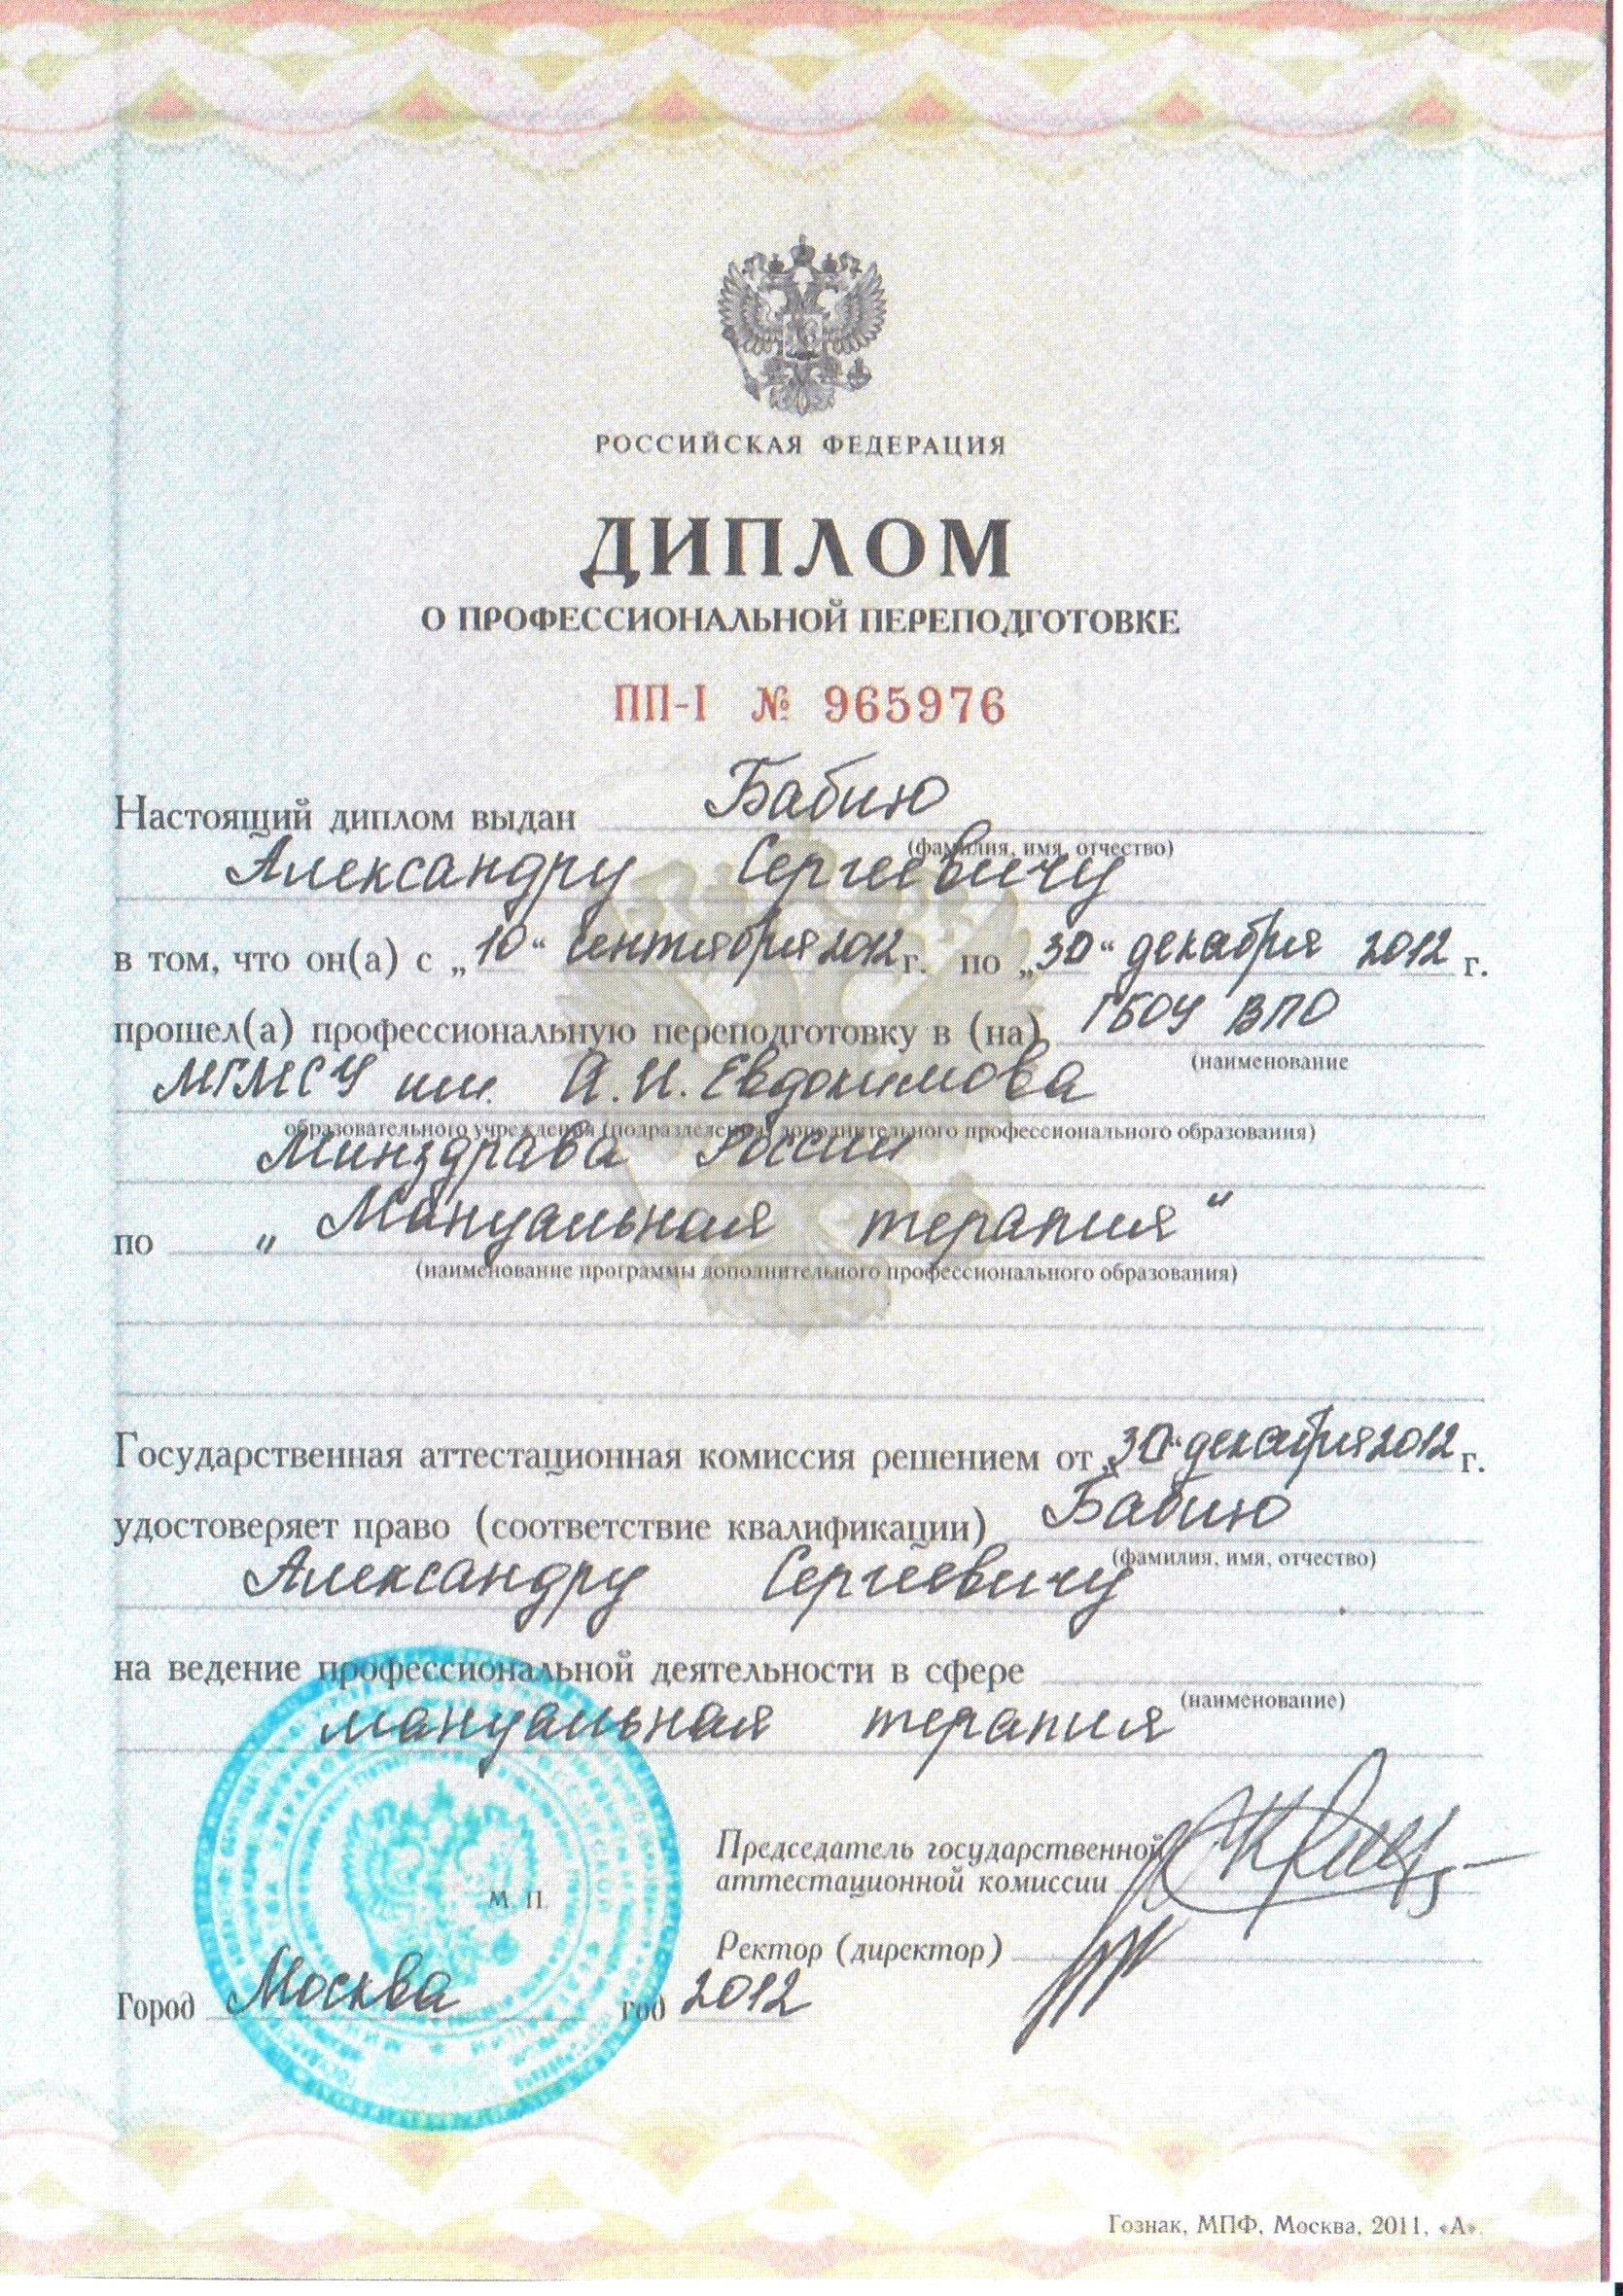 РОССИЙСКАЯ ФЕДЕРАЦИЯ
ДИПЛОМ
О ПРОФЕССИОНАЛЬНОЙ ПЕРЕПОДГОТОВКЕ
ПП-I № 965976
Настоящий диплом выдан Бабию
(фамилия, имя, отчество)
Александру Сергеевичу
в том, что он(а) с „10“ сентября 2012 г. по „30“ декабря 2012 г.
прошел(а) профессиональную переподготовку в (на) ГБОУ ВПО
(наименование
МГМСУ им. А.И. Евдокимова
образовательного учреждения (подразделения) дополнительного профессионального образования)
Минздрава России
по „Мануальная терапия“
(наименование программы дополнительного профессионального образования)
Государственная аттестационная комиссия решением от „30“ декабря 2012 г.
удостоверяет право (соответствие квалификации) Бабию
(фамилия, имя, отчество)
Александру Сергеевичу
на ведение профессиональной деятельности в сфере
(наименование)
мануальная терапия
Председатель государственной
аттестационной комиссии
М. П.
Ректор (директор)
Город Москва год 2012
Гознак, МПФ, Москва, 2011, «А».